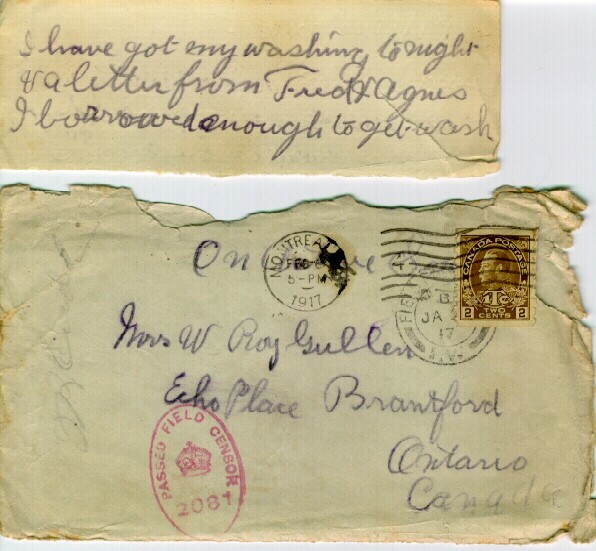 I have got my washing to night
& a letter from Fred & Agnes
I borrowed enough to get wash
On Active
MONTREAL
FEB 6
5-PM
1917
CANADA POSTAGE
2 TWO CENTS 2
FIELD
B
JA
17
Mrs W Roy Gullen
Echo Place Brantford
Ontario
Canada
PASSED FIELD CENSOR
2081